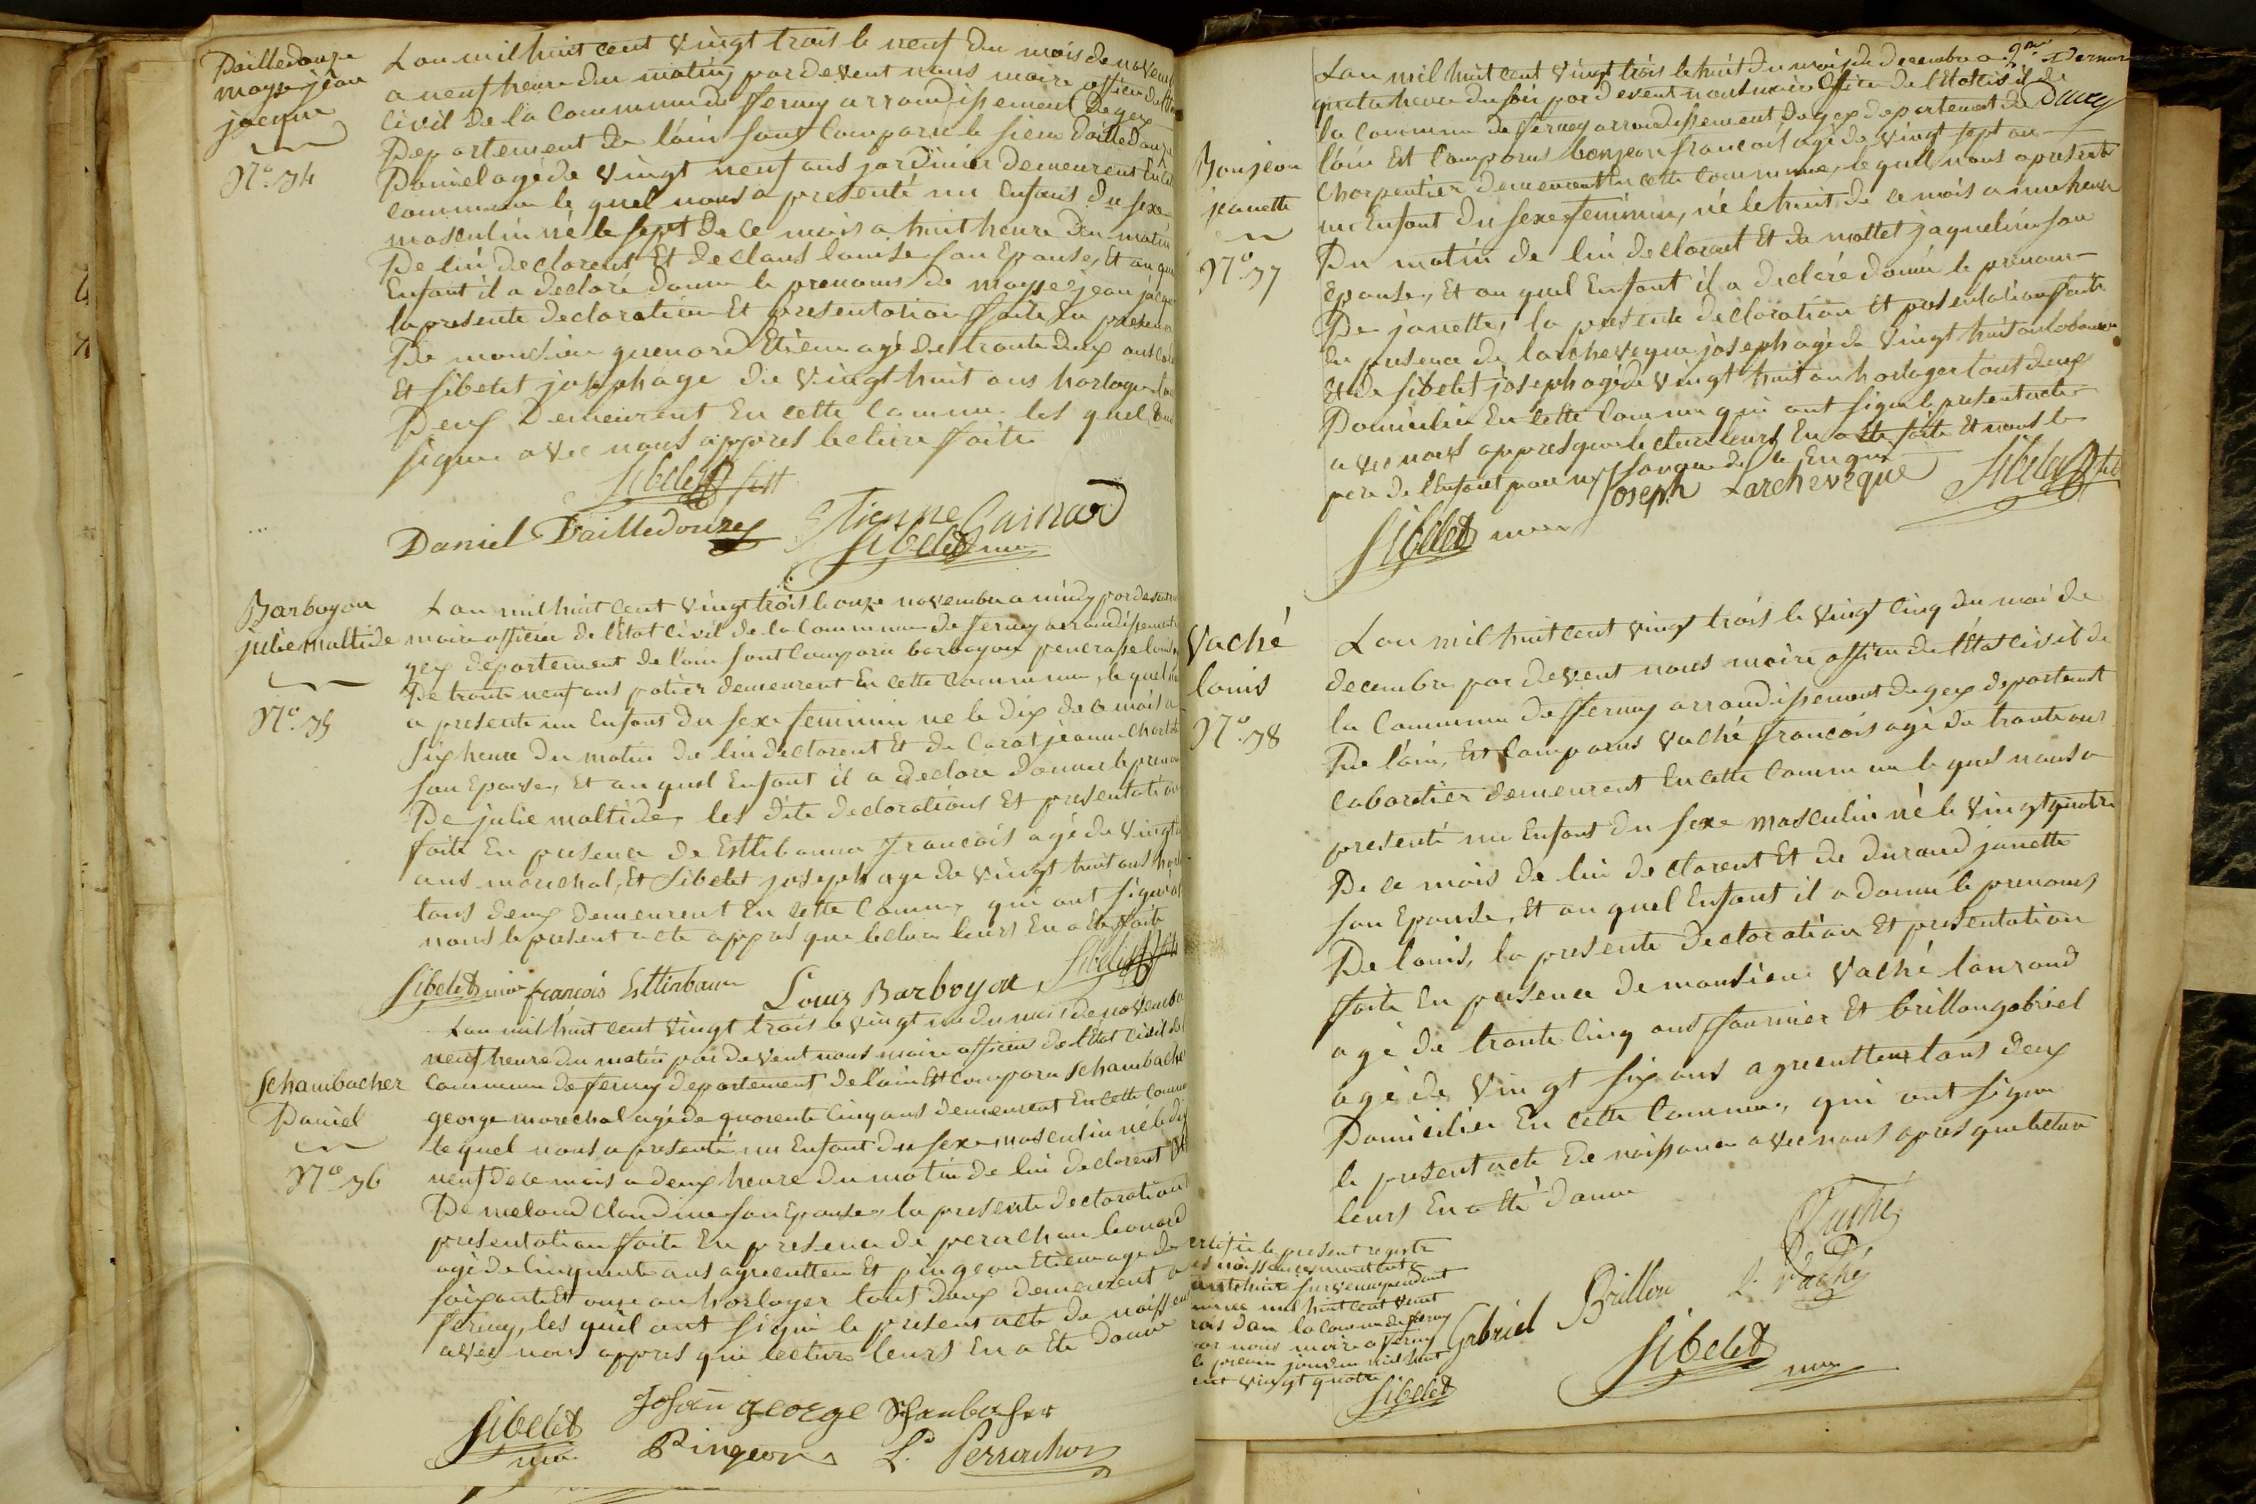 Dailledouze
moyse jean
jacque
N° 34
Lan mil huit cent vingt trois le neuf du mois de novem
a neuf heure du matin pardevent nous maire officier de
civil de la Commune de fernuy arrondissement de gex
Departement de l'ain sont Comparu le sieur Dailledouze
Daniel agé de vingt neuf ans jardinier demeurent En
commune le quel nous a presenté un Enfant du sexe
masculin né le sept de ce mois a huit heure du matin
De lui declarent Et de Claus louise son Epouse, Et au quel
Enfant il a declaré donner le prenoms de moyse jean jacque
la presente declaration Et presentation faite En presence
De monsieur guenard Etiene agé de trante deux ans
Et sibelet joseph agé de vingt huit ans horloger
Deux Demeurent En cette Commune les quel ont
signé avec nous appres lecture faite
Sibelet fils
Daniel Dailledouze Etienne Gainard
Sibelet maire
Barboyon
julie maltide
N° 35
Lan mil huit Cent vingt trois le onze novembre a midy pardevent
maire officier de l'Etat Civil de la Commune de fernuy arrondissement
gex departement de l'ain sont Comparu barboyon louis
De trante neuf ans potier demeurent En cette Commune, le quel
a presenté un Enfant du sexe feminin né le dix de ce mois a
six heure du matin de lui declarent Et de Carat jeanne
son Epouse, Et au quel Enfant il a declaré donner le prenom
De julie maltide, les dite declarations Et presentation
faite En presence de Estlibaum francois agé de vingt
ans marechal, Et Sibelet joseph agé de vingt huit ans
tous deux demeurent En cette Commune qui ont signé
nous le present acte appres que lecture leurs En a Eté faite
Sibelet maire françois Estlinbaum Louis Barboyon Sibelet fils
Schambacher
Daniel
N° 36
Lan mil huit cent vingt trois le vingt un du mois de novembre
neuf heure du matin par devent nous maire officier de l'Etat Civil de
Commune de fernuy departement de l'ain Est Comparu Schambacher
george marechal agé de quarente Cinq ans demeurent En cette Commune
le quel nous a presenté un Enfant du sexe masculin né le dix
neuf de ce mois a deux heure du matin de lui declarent Et
De meland Claudine son Epouse, la presente declaration
presentation faite En presence de perachon leonard
agé de Cinquente ans agreculteur Et pingeon Etiene agé de
soixante Et onze an horloger tout deux demeurent a
fernuy, les quel ont signé le present acte de naissance
avec nous appres que lecture leurs En a Eté donné
Sibelet maire Johan george Schambacher
Pingeon L. Perrachon
Bonjeon
jeanette
N° 37
Lan mil huit cent vingt trois le huit du mois de decembre a
quatre heure du soir par devent nous maire Officier de l'Etat Civil de
la Commune de fernuy arrondissement de gex departement de
l'ain Est Comparus bonjeon francois agé de vingt sept an
Charpentier demeurent En cette Commune, le quel nous a presenté
un Enfant du sexe feminin, né le huit de ce mois a une heure
Du matin de lui declarent Et de mottet jaqueline son
Epouse, Et au quel Enfant il a declaré donné le prenom
De janette, la presente declaration Et presentation faite
En presence de larcheveque joseph agé de vingt huit an
Et de sibelet joseph agé de vingt huit an horloger tout deux
Domicilié En cette Commune qui ont signé le present acte
avec nous appres que lecture leurs En a Eté faite Et non le
pere de l'Enfant pour ne savoir de ce Enquis
Joseph Larchevêque Sibelet fils
Sibelet maire
Vaché
louis
N° 38
Lan mil huit cent vingt trois le vingt Cinq du moi de
decembre par devent nous maire officier de l'Etat Civil de
la Commune de fernuy arrondissement de gex departement
De l'ain, Est Comparus vaché francois agé de trante ans
Cabartier demeurent En cette Commune le quel nous a
presenté un Enfant du sexe masculin né le vingt quatre
De ce mois de lui declarent Et de durand janette
son Epouse, Et au quel Enfant il a donné le prenoms
De louis, la presente declaration Et presentation
faite En presence de monsieur vaché laurand
agé de trante Cinq ans fournier Et brillon gabriel
agé de vingt six ans agreculteur tous deux
Domicilié En cette Commune, qui ont signé
le present acte de naissance avec nous apres que lecture
leurs En a Eté donné
Vaché
Gabriel Brillon L. Vaché
Sibelet maire
le present registre
mil huit cent vingt
rois dan la Commune de fernuy
par nous maire a fernuy
le premier janvier mil huit
cent vingt quatre
Sibelet